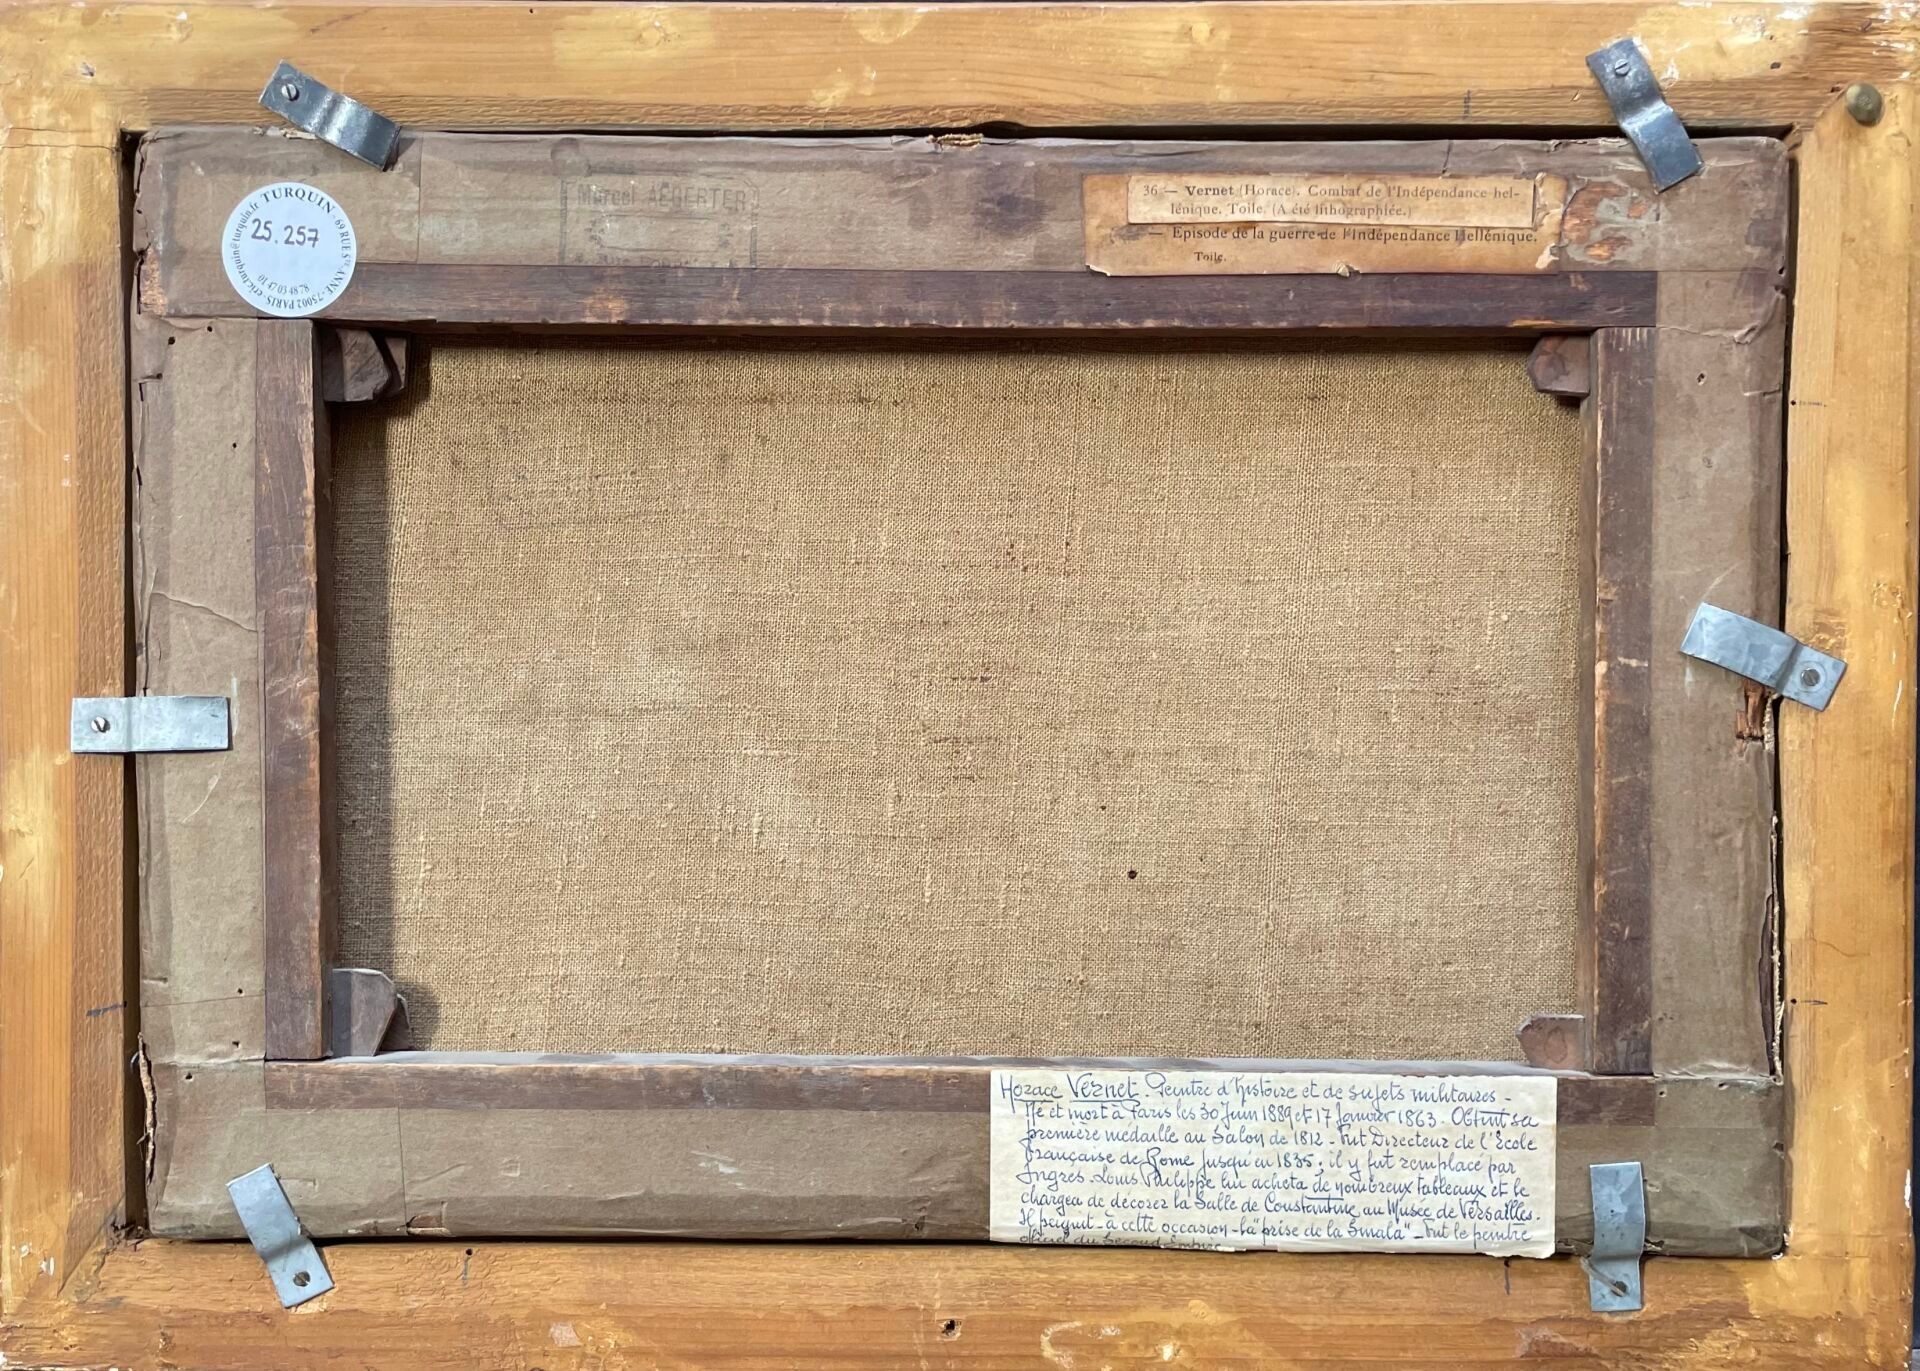 TURQUIN · 69 RUE Ste ANNE - 75002 PARIS - eric.turquin@turquin.fr
25.257
01 47 03 48 78
Marcel AEBERTER
36 — Vernet (Horace). Combat de l'Indépendance hel-
lénique. Toile. (A été lithographiée.)
— Episode de la guerre de l'Indépendance Hellénique.
Toile.
Horace Vernet. Peintre d'histoire et de sujets militaires -
Né et mort à Paris les 30 Juin 1889 et 17 Janvier 1863. Obtint sa
première médaille au Salon de 1812 - Fut Directeur de l'Ecole
française de Rome jusqu'en 1835; il y fut remplacé par
Ingres. Louis Philippe lui acheta de nombreux tableaux et le
chargea de décorer la Salle de Constantine au Musée de Versailles.
Il peignit - à cette occasion - la "prise de la Smala" - Fut le peintre
officiel du Second Empire